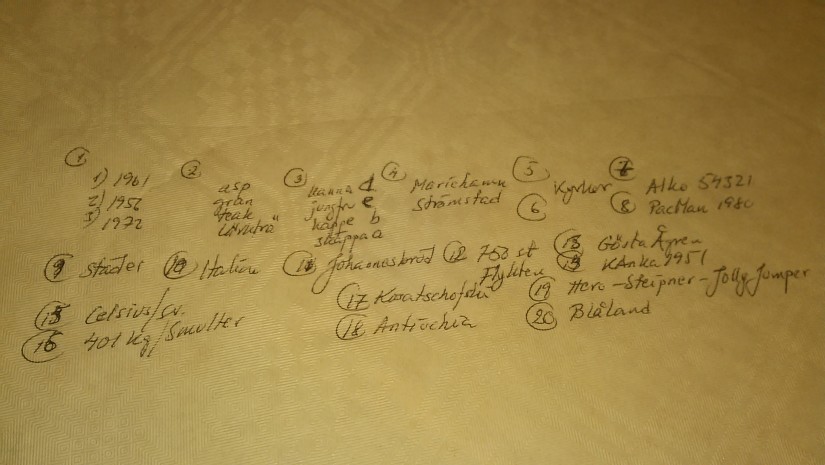 1
1) 1961
2) 1956
3) 1972
2
asp
gran
teak
lövträ
3
kanna d
jungfru e
kappe b
skäppa a
4
Mariehamn
Strömstad
5
Kyrkor
6
7
Alko 54321
8 PacMan 1980
9 Städer
10 Italien
11 Johannesbröd
12 750 st
Flykten
13 Gösta Ågren
KAnka 1951
15 Celsius/sv.
16 401 kg/Smulter
17
18 Antiochia
19 Hero-Sleipner-Jolly Jumper
20 Blåland